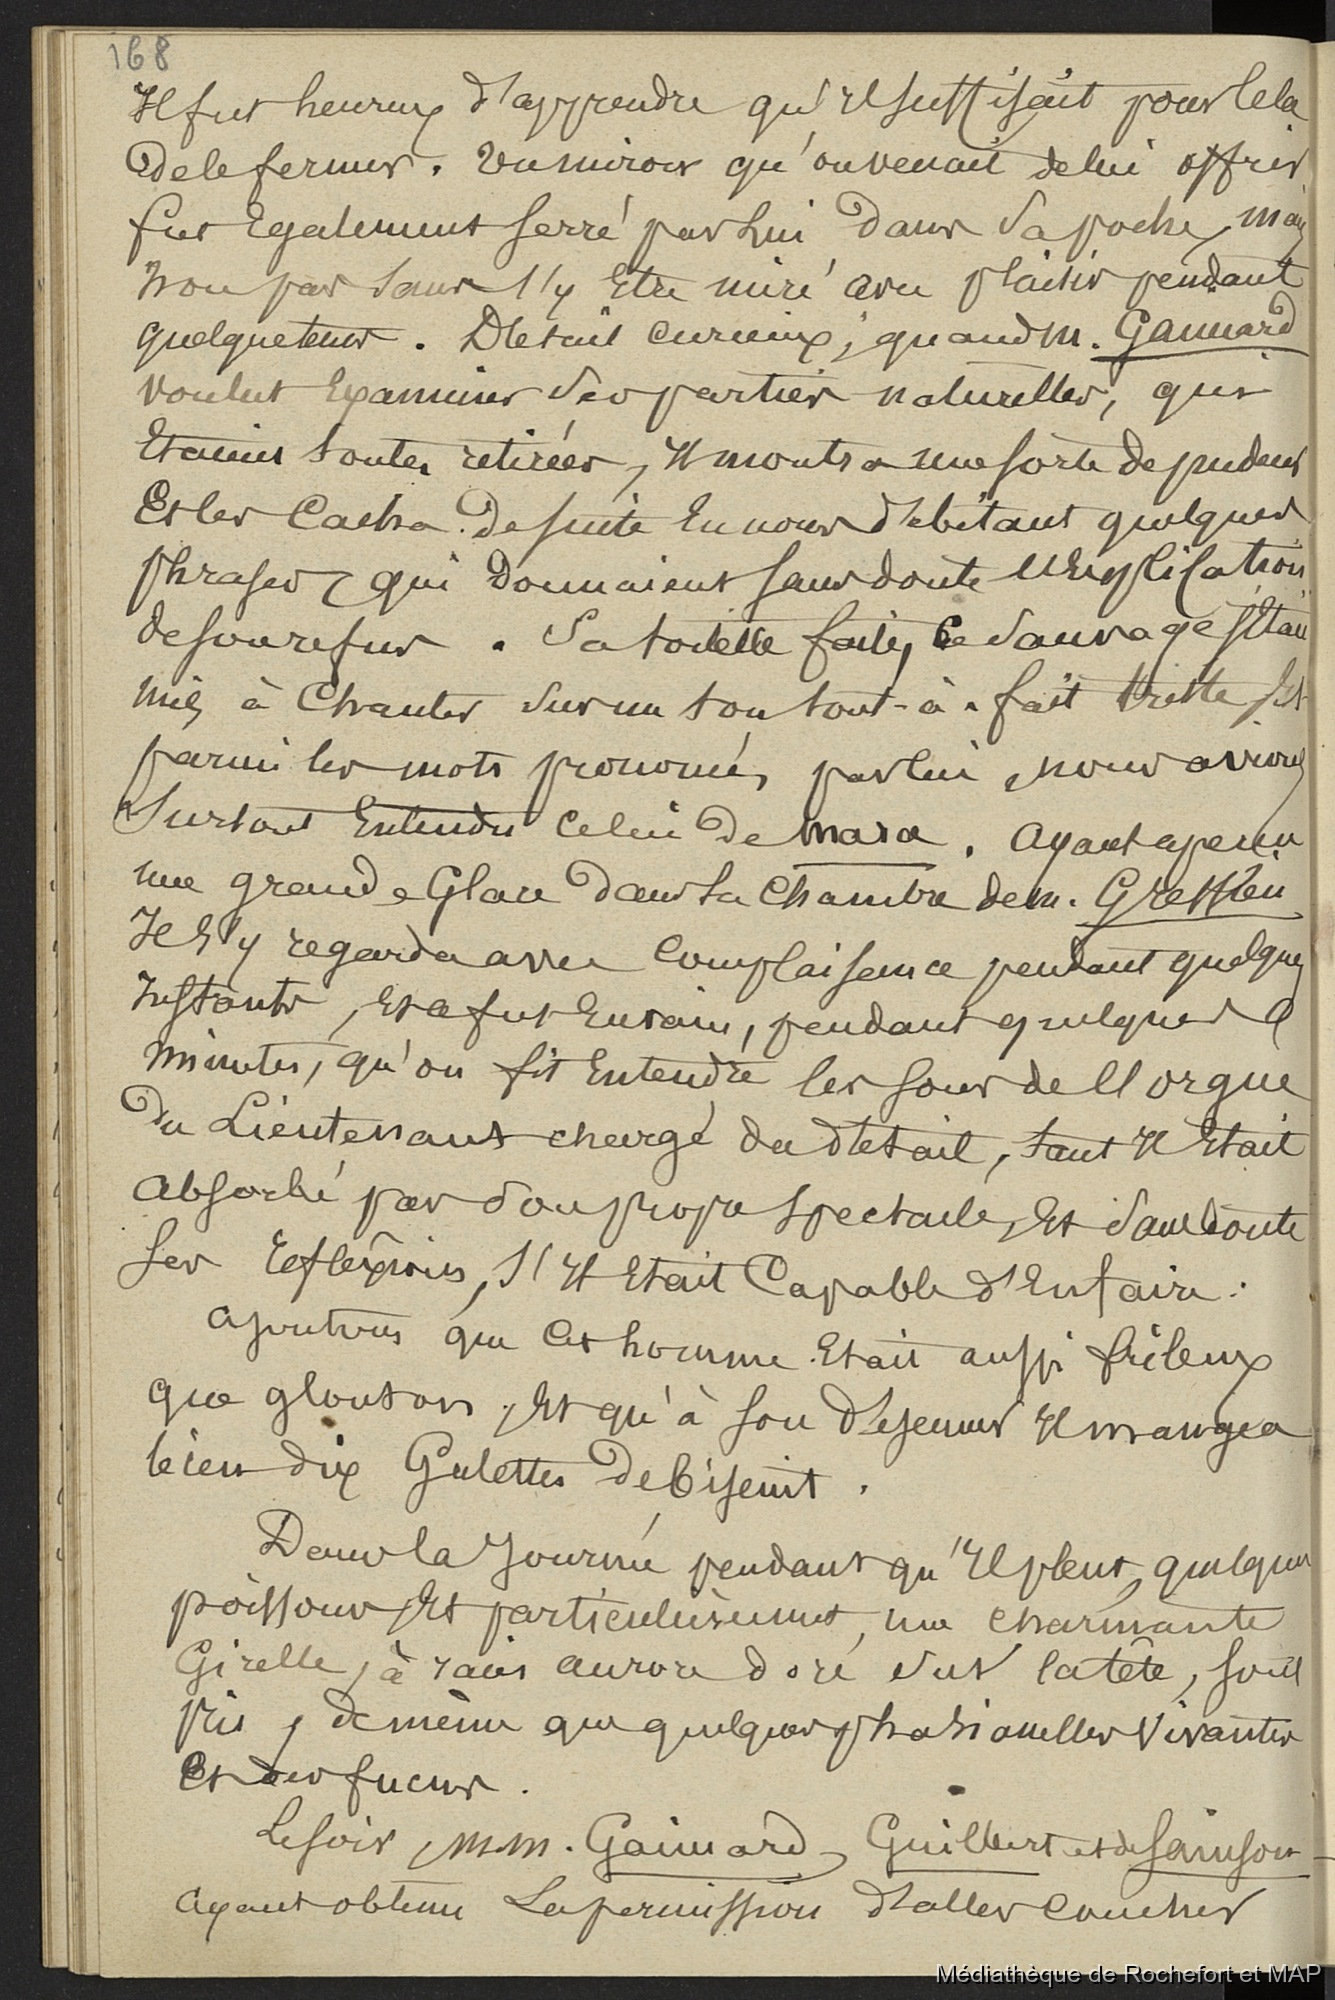 168
Il fut heureux d'apprendre qu'il suffisait pour cela
de le fermer. Un miroir qu'on venait de lui offrir
fut Egalement serré par Lui dans Sa poche, mais
non pas sans s'y Etre miré avec plaisir pendant
quelque tems. Il était curieux; quand m. Gaimard
voulut Examiner Ses parties naturelles, qui
Etaient toutes retirées, Il montra une sorte de pudeur
Et les Cacha de suite En nous débitant quelques
phrases, qui donnaient sans doute l'Explication
de son refus. Sa toilette faite, Ce Sauvage s'Etait
mis à Chanter Sur un ton tout-à-fait triste, Et
parmi les mots prononcés par lui, nous avions
Surtout Entendu Celui de mara. ayant aperçu
une grande Glace dans La Chambre de m. Gressien
Il s'y regarda avec Complaisance pendant quelques
Instants, Et ce fut En vain, pendant quelques
minutes, qu'on fit Entendre les sons de l'orgue
du Lieutenant chargé du détail, tant Il Etait
absorbé par Son propre Spectacle, Et Sans doute
ses réflexions, s'Il Etait Capable d'En faire.
ajoutons que Cet homme Etait aussi frileux
que glouton, Et qu'à son déjeuner Il mangea
bien dix Galettes de biscuit.
Dans la Journée pendant qu'Il pleut, quelques
poissons, Et particulièrement, une charmante
Girelle, à raies aurore doré sur la tête, sont
pris, de même que quelques phasianelles Vivantes
Et des fucus.
Le soir, M.M. Gaimard, Guilbert et de Sainson
ayant obtenu La permission d'aller coucher
Médiathèque de Rochefort et MAP